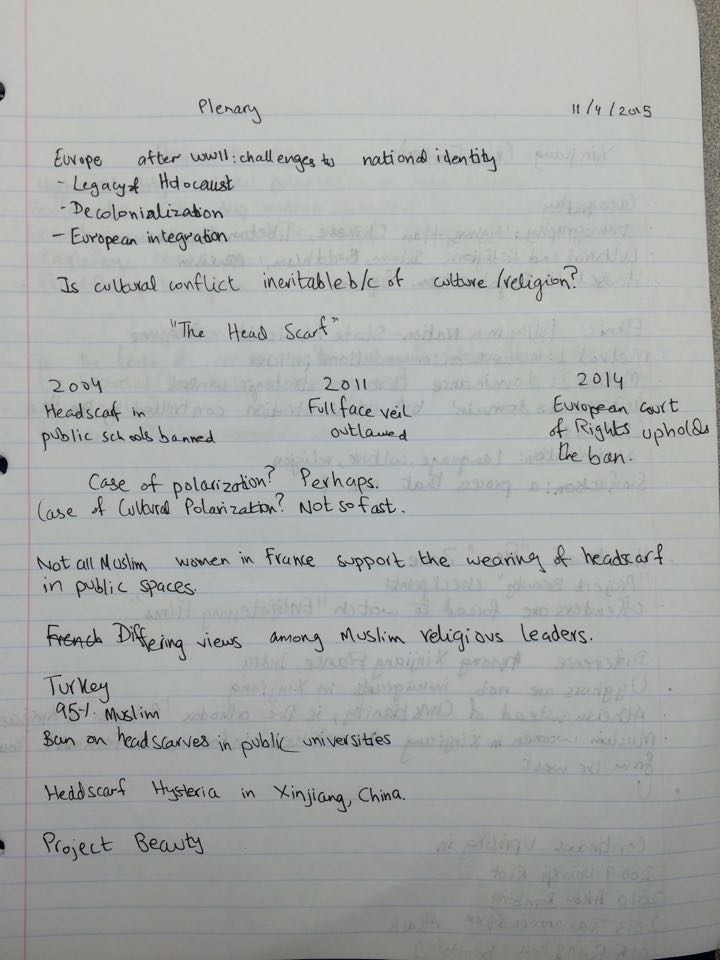 Plenary 11/4/2015
Europe after WWII: challenges to national identity
- Legacy of Holocaust
- Decolonialization
- European integration
Is cultural conflict inevitable b/c of culture/religion?
"The Head Scarf"
2004 2011 2014
Headscarf in Full face veil European court
public schools banned outlawed of Rights upholds
the ban.
Case of polarization? Perhaps.
Case of Cultural Polarization? Not so fast.
Not all Muslim women in France support the wearing of headscarf
in public spaces.
French Differing views among Muslim religious leaders.
Turkey
95% Muslim
Ban on headscarves in public universities
Heddscarf Hysteria in Xinjiang, China.
Project Beauty